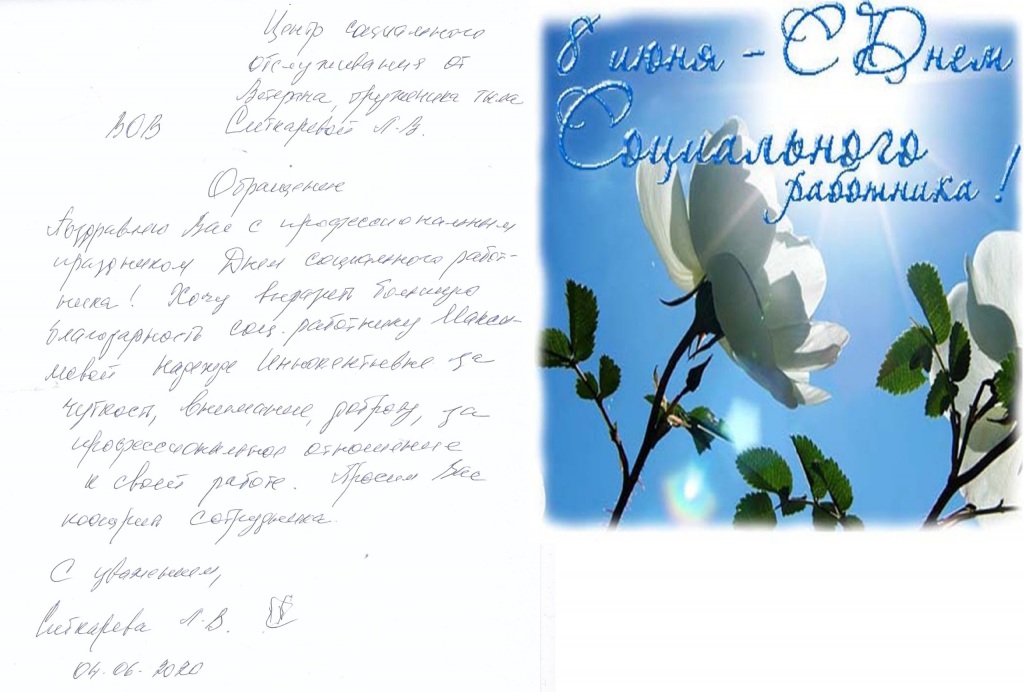 Центр социального
обслуживания от
Ветерана, труженика тыла
ВОВ Ситкаревой Л.В.
Обращение
Поздравляю Вас с профессиональным
праздником Днем социального работ-
ника! Хочу выразить большую
благодарность соц. работнику Макси-
мовой Надежде Иннокентьевне за
чуткость, внимание, доброту, за
профессиональное отношение
к своей работе. Просим Вас
поощрить сотрудника.
С уважением,
Ситкарева Л.В.
04.06.2020
8 июня - С Днем
Социального
работника!